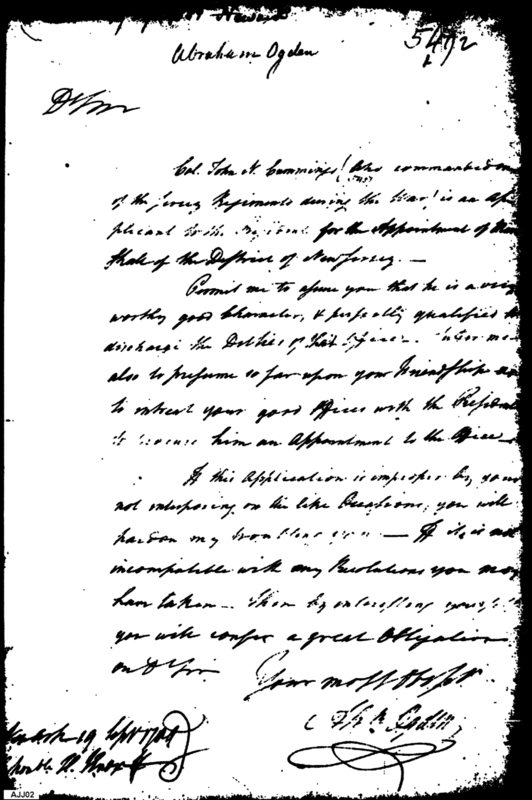 Abraham Ogden
5492
Dr Sir
Col. John N. Cummings (who commanded one
of the Jersey Regiments during the War) is an Ap
plicant to the President for the Appointment of Mar
shall of the District of New Jersey. —
Permit me to assure you that he is a very
worthy good Character, & perfectly qualified to
discharge the Duties of that Office. me
also to presume so far upon your Friendship as
to intreat your good Offices with the President
to procure him an Appointment to the Office —
If this Application is improper by your
not interposing on the like Occasions, you will
pardon my troubling you — If it is not
incompatible with any Resolutions you may
have taken — then by interesting yourself
you will confer a great Obligation
on Dr Sir
Your most Obdt
Abm Ogden
Newark 19 Sept
Honble H. Knox
AJJ02